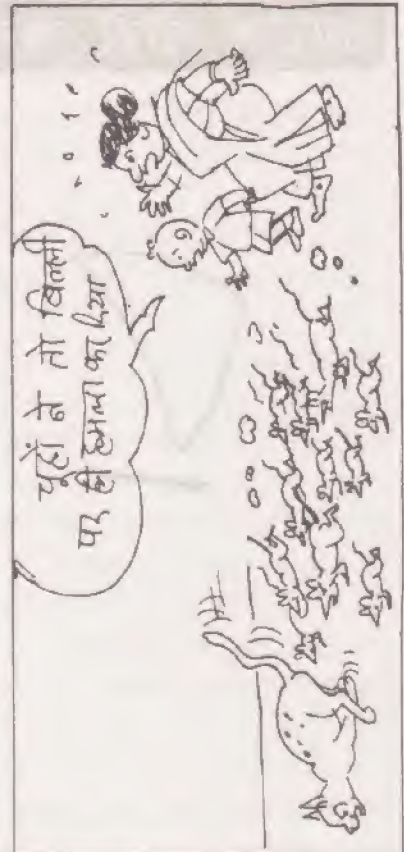 चूहों ने तो बिल्ली
पर ही हमला कर दिया